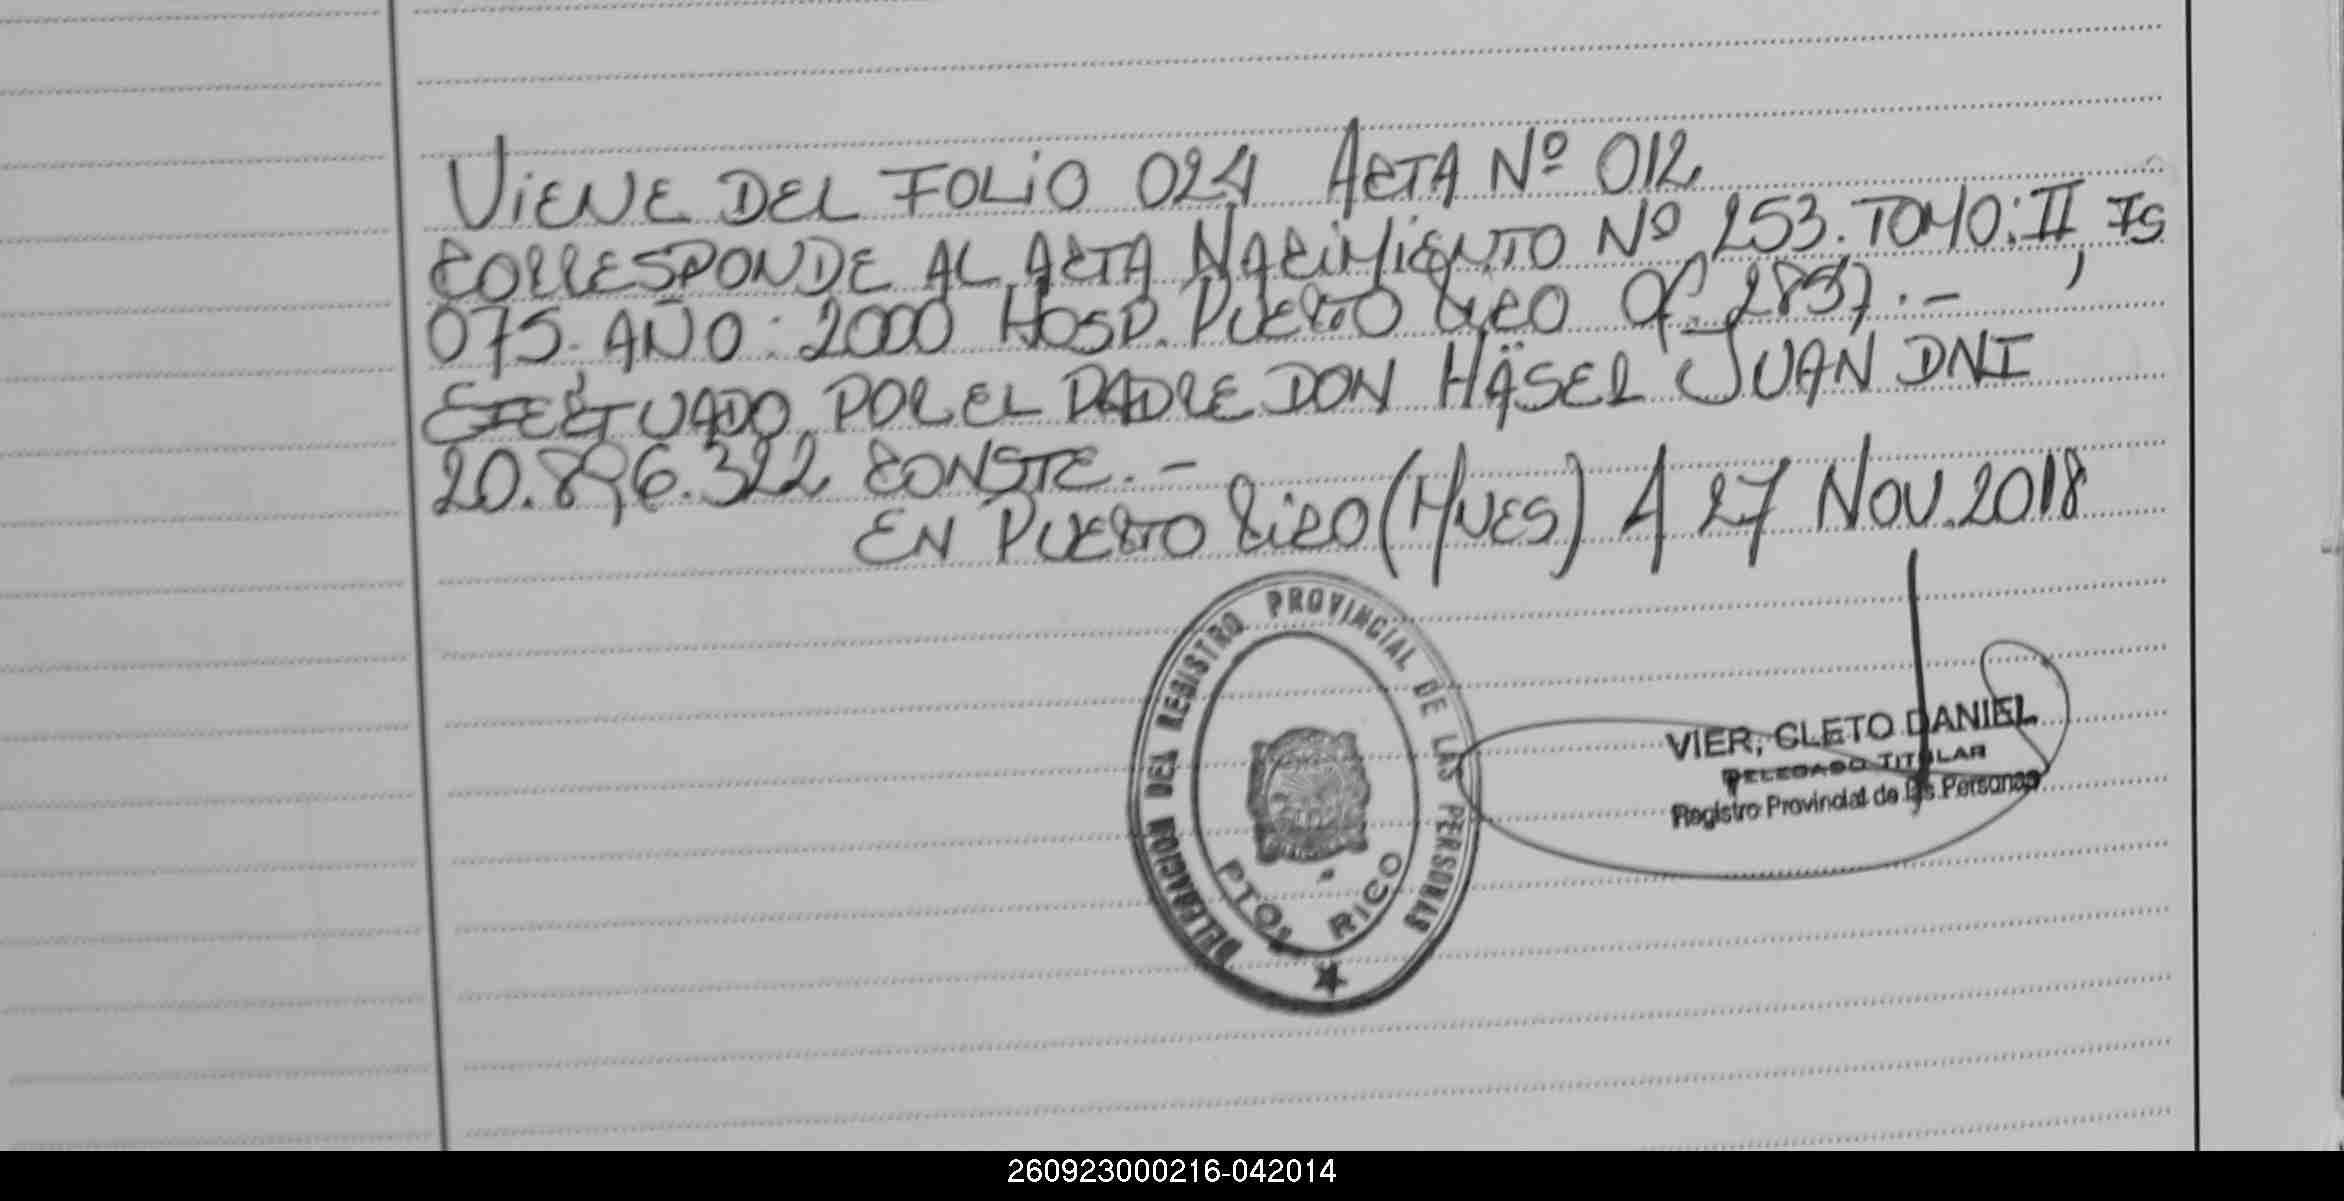 VIENE DEL FOLIO 024 ACTA Nº 012
CORRESPONDE AL ACTA NACIMIENTO Nº 253. TOMO: II, Fs
075. AÑO: 2000 HOSP. PUERTO RICO Of. 2837.-
EFECTUADO POR EL PADRE DON HÄSER JUAN DNI
20.896.322 CONSTE.-
EN PUERTO RICO (MNES) A 27 NOV. 2018
DELEGACION DEL REGISTRO PROVINCIAL DE LAS PERSONAS
PTO. RICO
VIER, CLETO DANIEL
DELEGADO TITULAR
Registro Provincial de las Personas
260923000216-042014